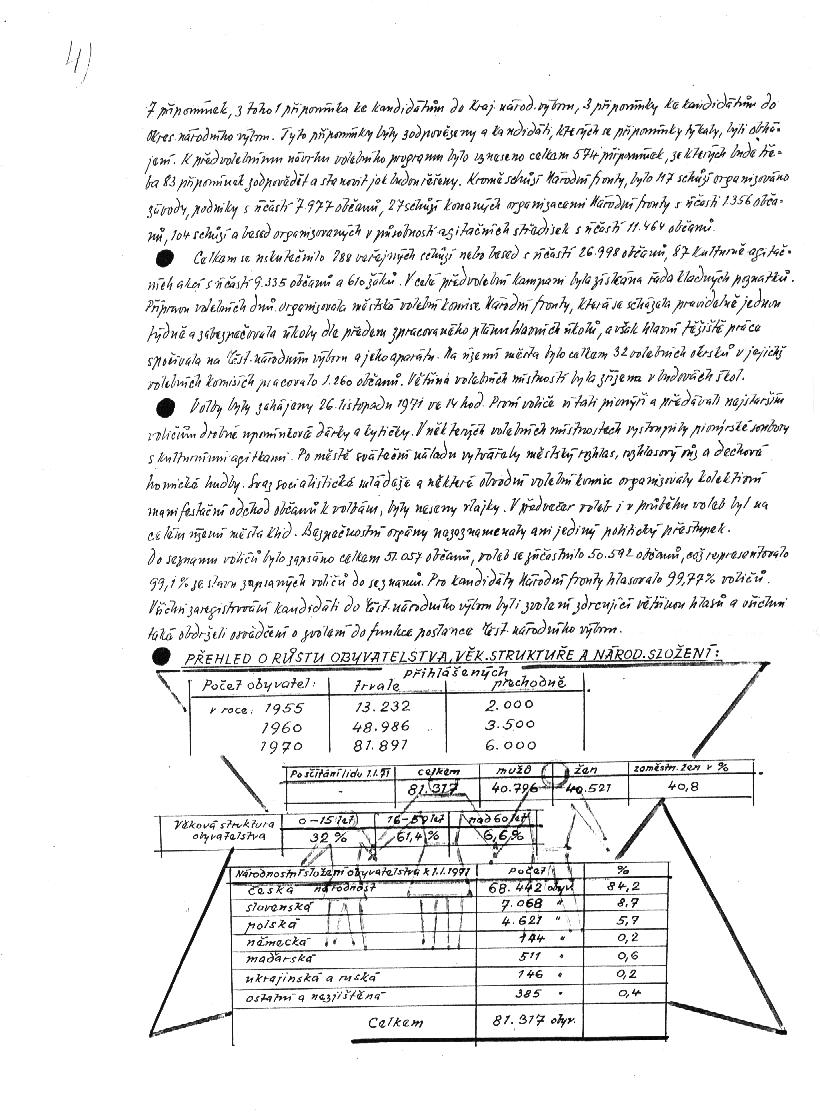 4)
7 připomínek, z toho 1 připomínka ke kandidátům do Kraj. národ. výboru, 3 připomínky ke kandidátům do
Okres. národního výboru. Tyto připomínky byly zodpovězeny a kandidáti, kterých se připomínky týkaly, byli obhá-
jeni. K předvolebnímu návrhu volebního programu bylo vzneseno celkem 574 připomínek, ze kterých bude tře-
ba 83 připomínek zodpovědět a stanovit jak budou řešeny. Kromě schůzí Národní fronty, bylo 117 schůzí organizováno
závody, podniky s účastí 7.977 občanů, 27 schůzí konaných organizacemi Národní fronty s účastí 1356 obča-
nů, 104 schůzí a besed organizovaných v působnosti agitačních středisek s účastí 11.464 občanů.
Celkem se uskutečnilo 288 veřejných schůzí nebo besed s účastí 26.998 občanů, 87 kulturně agitač-
ních akcí s účastí 9.335 občanů a 610 žáků. V celé předvolební kampani byla získána řada kladných poznatků.
Přípravu volebních dnů organizovala městská volební komise Národní fronty, která se scházela pravidelně jednou
týdně a zabezpečovala úkoly dle předem zpracovaného plánu hlavních úkolů, avšak hlavní těžiště práce
spočívala na Měst. národním výboru a jeho aparátu. Na území města bylo celkem 32 volebních okrsků v jejichž
volebních komisích pracovalo 1.260 občanů. Většina volebních místností byla zřízena v budovách škol.
Volby byly zahájeny 26. listopadu 1971 ve 14 hod. První voliče vítali pionýři a předávali nejstarším
voličům drobné upomínkové dárky a kytičky. V některých volebních místnostech vystoupily pionýrské soubory
s kulturními agitkami. Po městě sváteční náladu vytvářely městský rozhlas, rozhlasový vůz a dechová
hornická hudby. Svaz socialistické mládeže a některé obvodní volební komise organizovaly kolektivní
manifestační odchod občanů k volbám, byly neseny vlajky. V předvečer voleb i v průběhu voleb byl na
celém území města klid. Bezpečnostní orgány nezaznamenaly ani jediný politický přestupek.
Do seznamu voličů bylo zapsáno celkem 51.057 občanů, voleb se zúčastnilo 50.592 občanů, což representovalo
99,1% ze stavu zapsaných voličů do seznamů. Pro kandidáty Národní fronty hlasovalo 99,77% voličů.
Všichni zaregistrování kandidáti do Měst. národního výboru byli zvoleni zdrcující většinou hlasů a všichni
také obdrželi osvědčení o zvolení do funkce poslance Měst. národního výboru.
PŘEHLED O RŮSTU OBYVATELSTVA, VĚK. STRUKTUŘE A NÁROD. SLOŽENÍ:
přihlášených
Počet obyvatel: trvale přechodně
v roce: 1955 13.232 2.000
1960 48.986 3.500
1970 81.891 6.000
Po sčítání lidu 1.1.71 celkem mužů žen zaměstn. žen v %
- 81.317 40.796 40.521 40,8
Věková struktura obyvatelstva 0-15 let 16-59 let nad 60 let
32% 61,4% 6,6%
Národnostní složení obyvatelstva k 1.1.1971 Počet %
česká národnost 68.442 obyv. 84,2
slovenská 7.068 " 8,7
polská 4.621 " 5,7
německá 144 " 0,2
maďarská 511 " 0,6
ukrajinská a ruská 146 " 0,2
ostatní a nezjištěná 385 " 0,4
Celkem 81.317 obyv.